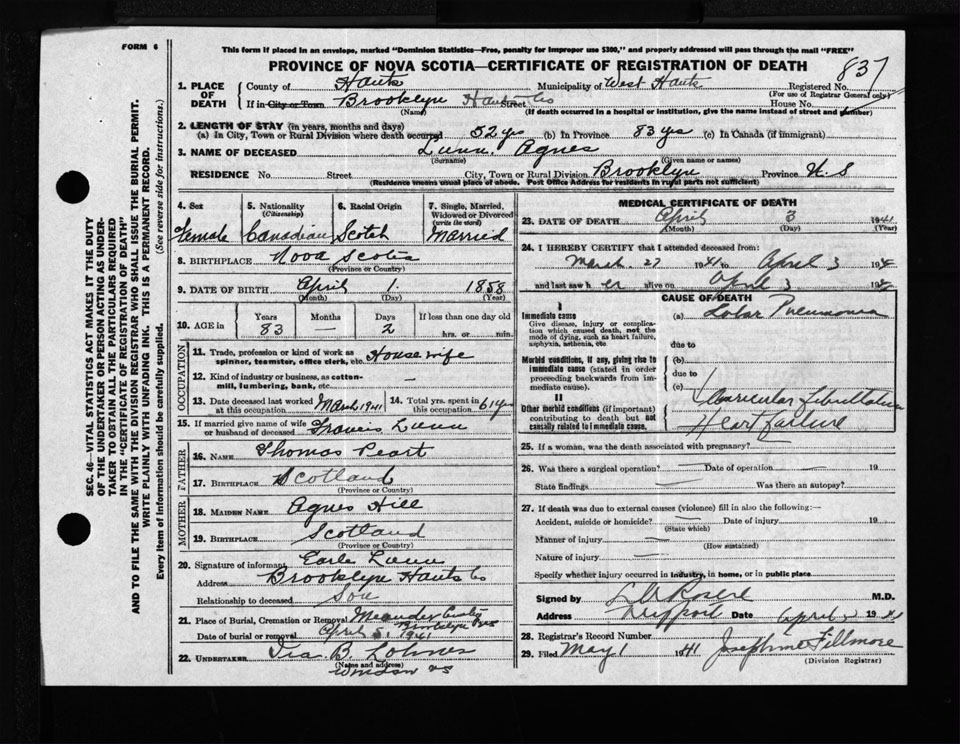 FORM 6
This form if placed in an envelope, marked "Dominion Statistics—Free, penalty for improper use $300," and properly addressed will pass through the mail "FREE"
PROVINCE OF NOVA SCOTIA—CERTIFICATE OF REGISTRATION OF DEATH
837
SEC. 46—VITAL STATISTICS ACT MAKES IT THE DUTY
OF THE UNDERTAKER OR PERSON ACTING AS UNDER-
TAKER TO OBTAIN ALL THE PARTICULARS REQUIRED
IN THE "CERTIFICATE OF REGISTRATION OF DEATH"
AND TO FILE THE SAME WITH THE DIVISION REGISTRAR WHO SHALL ISSUE THE BURIAL PERMIT.
WRITE PLAINLY WITH UNFADING INK. THIS IS A PERMANENT RECORD.
Every item of Information should be carefully supplied. (See reverse side for instructions.)
1. PLACE OF DEATH
County of Hants Municipality of West Hants Registered No.
(For use of Registrar General only)
If in City or Town Brooklyn Hants Co Street House No.
(Name) (If death occurred in a hospital or institution, give the name instead of street and number)
2. LENGTH OF STAY (in years, months and days)
(a) In City, Town or Rural Division where death occurred 52 ys (b) In Province 83 ys (c) In Canada (if immigrant)
3. NAME OF DECEASED Lunn. Agnes
(Surname) (Given name or names)
RESIDENCE No. Street City, Town or Rural Division Brooklyn Province N.S
(Residence means usual place of abode. Post Office Address for residents in rural parts not sufficient)
4. Sex Female
5. Nationality (Citizenship) Canadian
6. Racial Origin Scotch
7. Single, Married, Widowed or Divorced (write the word) Married
8. BIRTHPLACE Nova Scotia
(Province or Country)
9. DATE OF BIRTH April 1 1858
(Month) (Day) (Year)
10. AGE in Years 83 Months — Days 2 If less than one day old hrs. or min.
OCCUPATION
11. Trade, profession or kind of work as spinner, teamster, office clerk, etc. House wife
12. Kind of industry or business, as cotton-mill, lumbering, bank, etc. —
13. Date deceased last worked at this occupation March 1941
14. Total yrs. spent in this occupation 61 yrs
15. If married give name of wife or husband of deceased Francis Lunn
FATHER
16. NAME Thomas Peart
17. BIRTHPLACE Scotland
(Province or Country)
MOTHER
18. MAIDEN NAME Agnes Hill
19. BIRTHPLACE Scotland
(Province or Country)
20. Signature of informant Earle Lunn
Address Brooklyn Hants Co
Relationship to deceased Son
21. Place of Burial, Cremation or Removal Brooklyn
Date of burial or removal April 5, 1941
22. UNDERTAKER Ira B. Lohnes
(Name and address)
Windsor NS
MEDICAL CERTIFICATE OF DEATH
23. DATE OF DEATH April 3 1941
(Month) (Day) (Year)
24. I HEREBY CERTIFY that I attended deceased from:
March. 27 1941 to April 3 194
and last saw her alive on April 3 194
CAUSE OF DEATH
I
Immediate cause
Give disease, injury or complication which caused death, not the mode of dying, such as heart failure, asphyxia, asthenia, etc.
(a) Lobar Pneumonia
due to
Morbid conditions, if any, giving rise to immediate cause (stated in order proceeding backwards from immediate cause).
(b)
due to
(c)
II
Other morbid conditions (if important) contributing to death but not causally related to immediate cause.
Auricular fibrillation
Heart failure
25. If a woman, was the death associated with pregnancy?
26. Was there a surgical operation? — Date of operation — 19
State findings — Was there an autopsy?
27. If death was due to external causes (violence) fill in also the following:—
Accident, suicide or homicide? — Date of injury 19
(State which)
Manner of injury —
(How sustained)
Nature of injury —
Specify whether injury occurred in industry, in home, or in public place
Signed by M.D.
Address Date April 19
28. Registrar's Record Number
29. Filed May 1 1941 Josephine Fillmore
(Division Registrar)